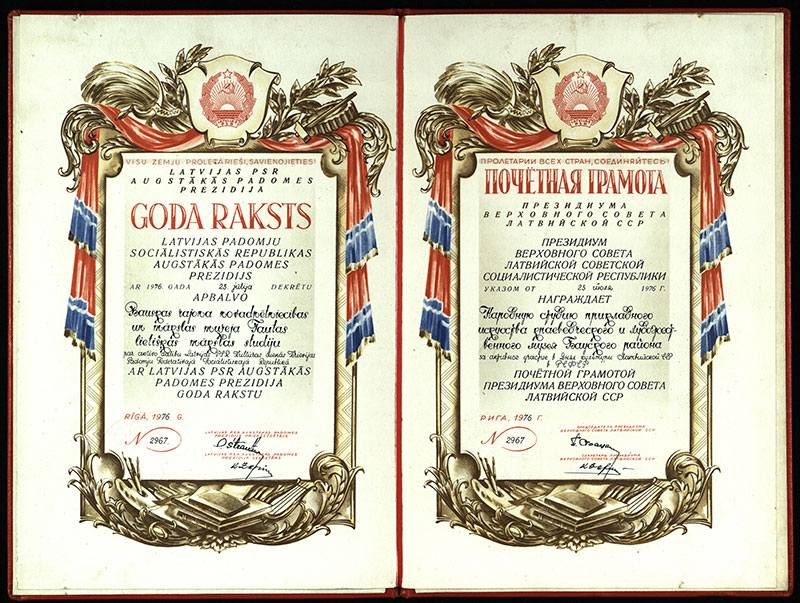 VISU ZEMJU PROLETĀRIEŠI, SAVIENOJIETIES!
LATVIJAS PSR
AUGSTĀKĀS PADOMES
PREZIDIJA
GODA RAKSTS
LATVIJAS PADOMJU
SOCIĀLISTISKĀS REPUBLIKAS
AUGSTĀKĀS PADOMES
PREZIDIJS
AR 1976. GADA 23. jūlija DEKRĒTU
APBALVO
Bauskas rajona novadpētniecības
un mākslas muzeja Tautas
lietišķās mākslas studiju
par aktīvo dalību Latvijas PSR Kultūras dienās Krievijas
Padomju Federatīvajā Sociālistiskajā Republikā
AR LATVIJAS PSR AUGSTĀKĀS
PADOMES PREZIDIJA
GODA RAKSTU
RĪGĀ, 1976. G.
N 2967.
LATVIJAS PSR AUGSTĀKĀS PADOMES
PREZIDIJA PRIEKŠSĒDĒTĀJS
LATVIJAS PSR AUGSTĀKĀS PADOMES
PREZIDIJA SEKRETĀRS
ПРОЛЕТАРИИ ВСЕХ СТРАН, СОЕДИНЯЙТЕСЬ!
ПОЧЁТНАЯ ГРАМОТА
ПРЕЗИДИУМА
ВЕРХОВНОГО СОВЕТА
ЛАТВИЙСКОЙ ССР
ПРЕЗИДИУМ
ВЕРХОВНОГО СОВЕТА
ЛАТВИЙСКОЙ СОВЕТСКОЙ
СОЦИАЛИСТИЧЕСКОЙ РЕСПУБЛИКИ
УКАЗОМ ОТ 23 июля 1976 Г.
НАГРАЖДАЕТ
Народную студию прикладного
искусства краеведческого и художест-
венного музея Бауского района
за активное участие в Днях культуры Латвийской ССР
в РСФСР
ПОЧЁТНОЙ ГРАМОТОЙ
ПРЕЗИДИУМА ВЕРХОВНОГО СОВЕТА
ЛАТВИЙСКОЙ ССР
РИГА, 1976 Г.
N 2967
ПРЕДСЕДАТЕЛЬ ПРЕЗИДИУМА
ВЕРХОВНОГО СОВЕТА ЛАТВИЙСКОЙ ССР
СЕКРЕТАРЬ ПРЕЗИДИУМА
ВЕРХОВНОГО СОВЕТА ЛАТВИЙСКОЙ ССР